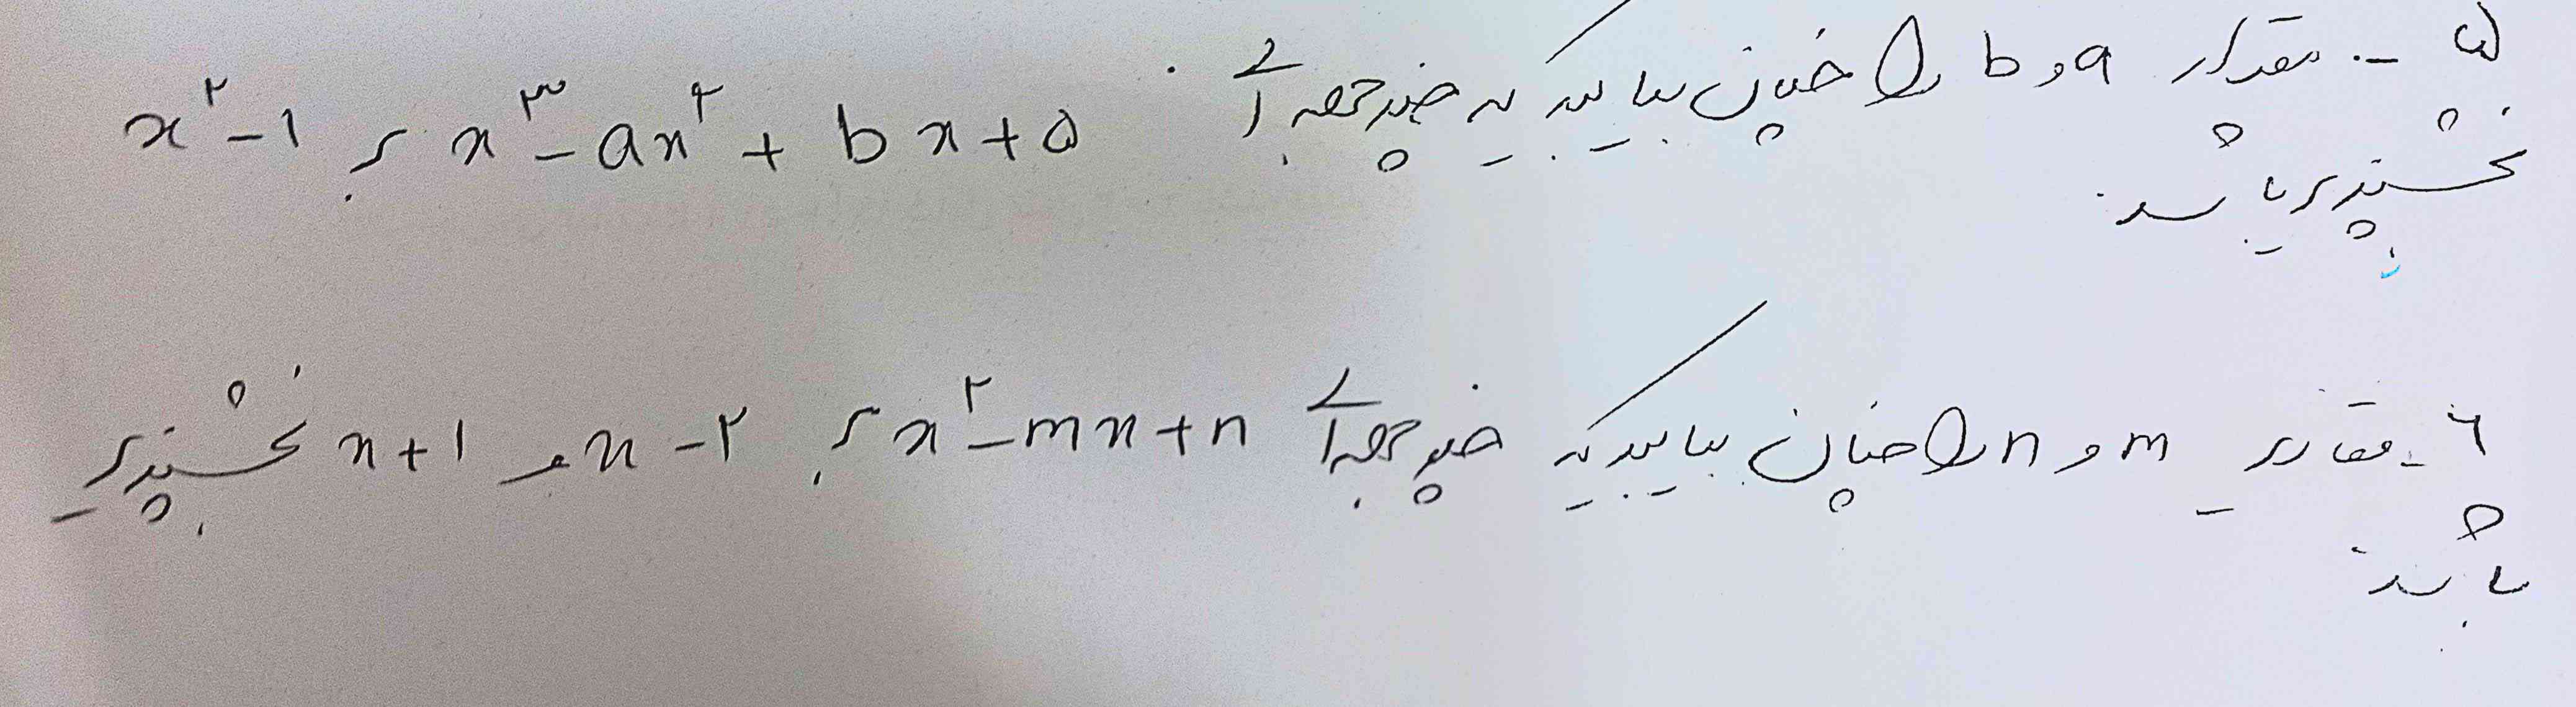 ۵ - مقدار a و b را چنان بیابید که چندجمله‌ای x³ - ax² + bx + ۵ بر x² - 1
بخشپذیر باشد.
۶ - مقادیر m و n را چنان بیابید که چندجمله‌ای x² - mx + n بر x - ۲ و x + 1 بخشپذیر
باشد.